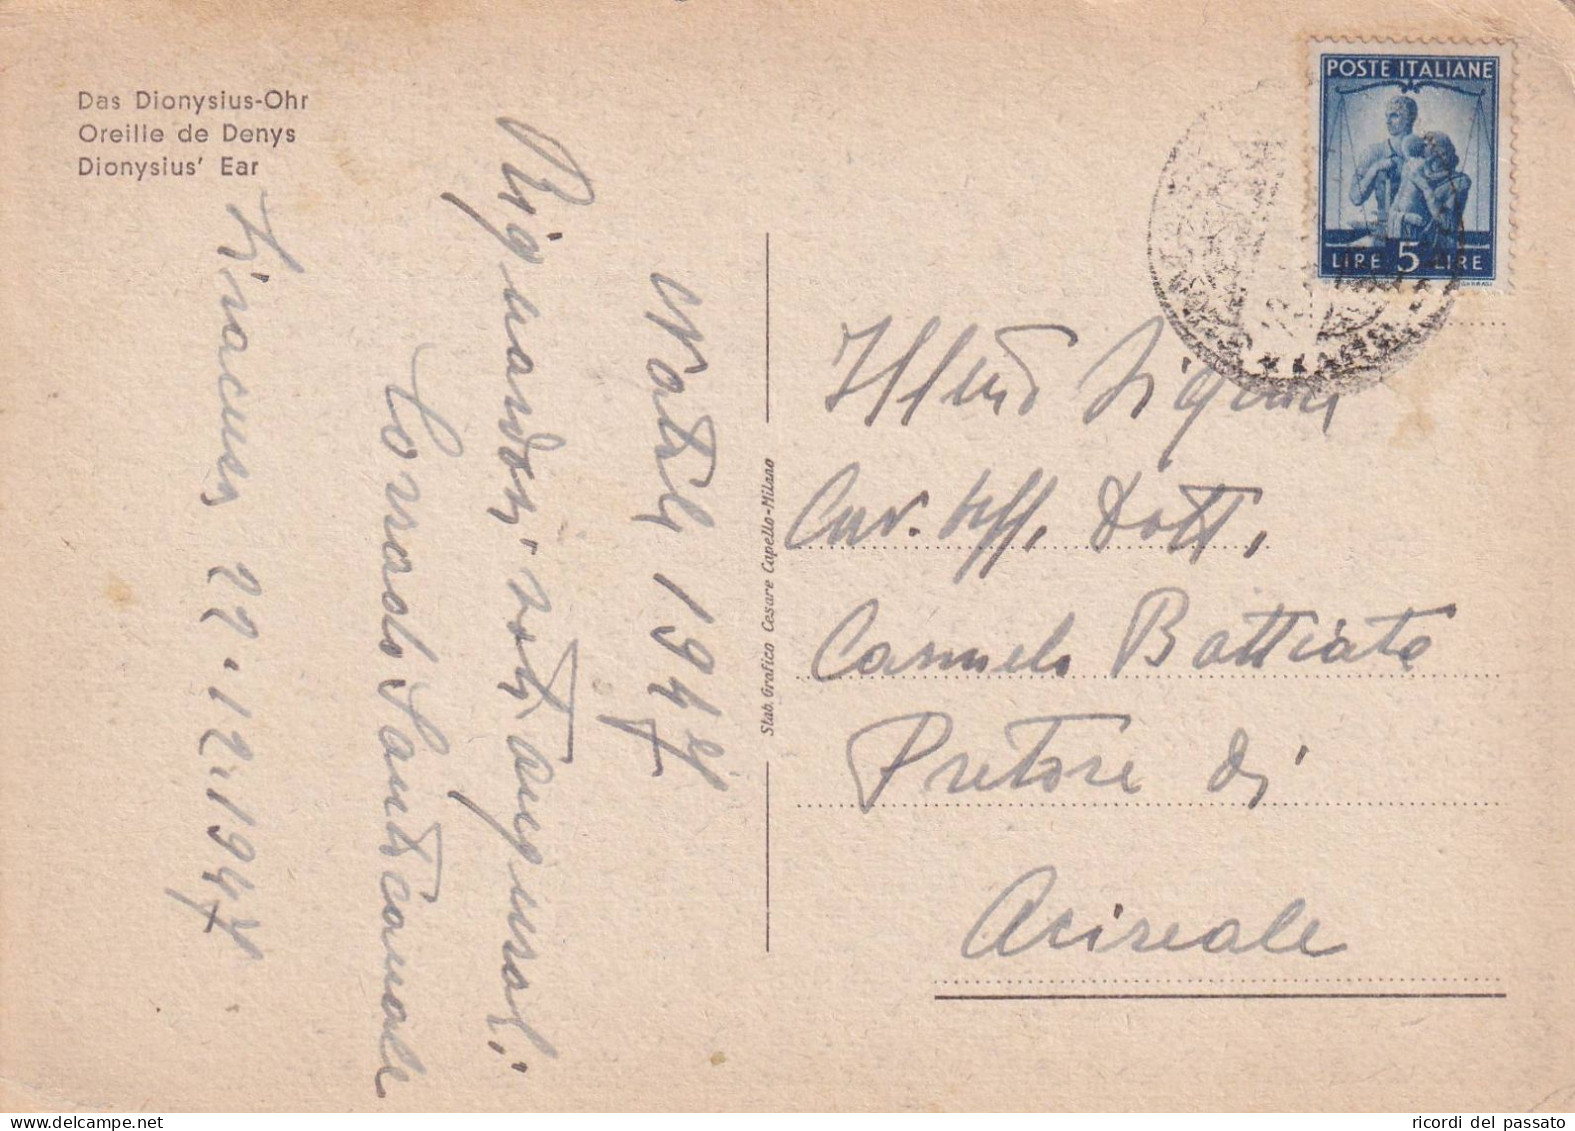 Das Dionysius-Ohr
Oreille de Denys
Dionysius' Ear
Natale 1947
Riguardosi voti augurali.
Corrado Santicamale
Siracusa, 22.12.1947
Stab. Grafico Cesare Capello-Milano
POSTE ITALIANE
LIRE 5 LIRE
Ill.mo Signor
Cav. Uff. Dott.
Carmelo Battiato
Pretore di
Acireale
ricordi del passato